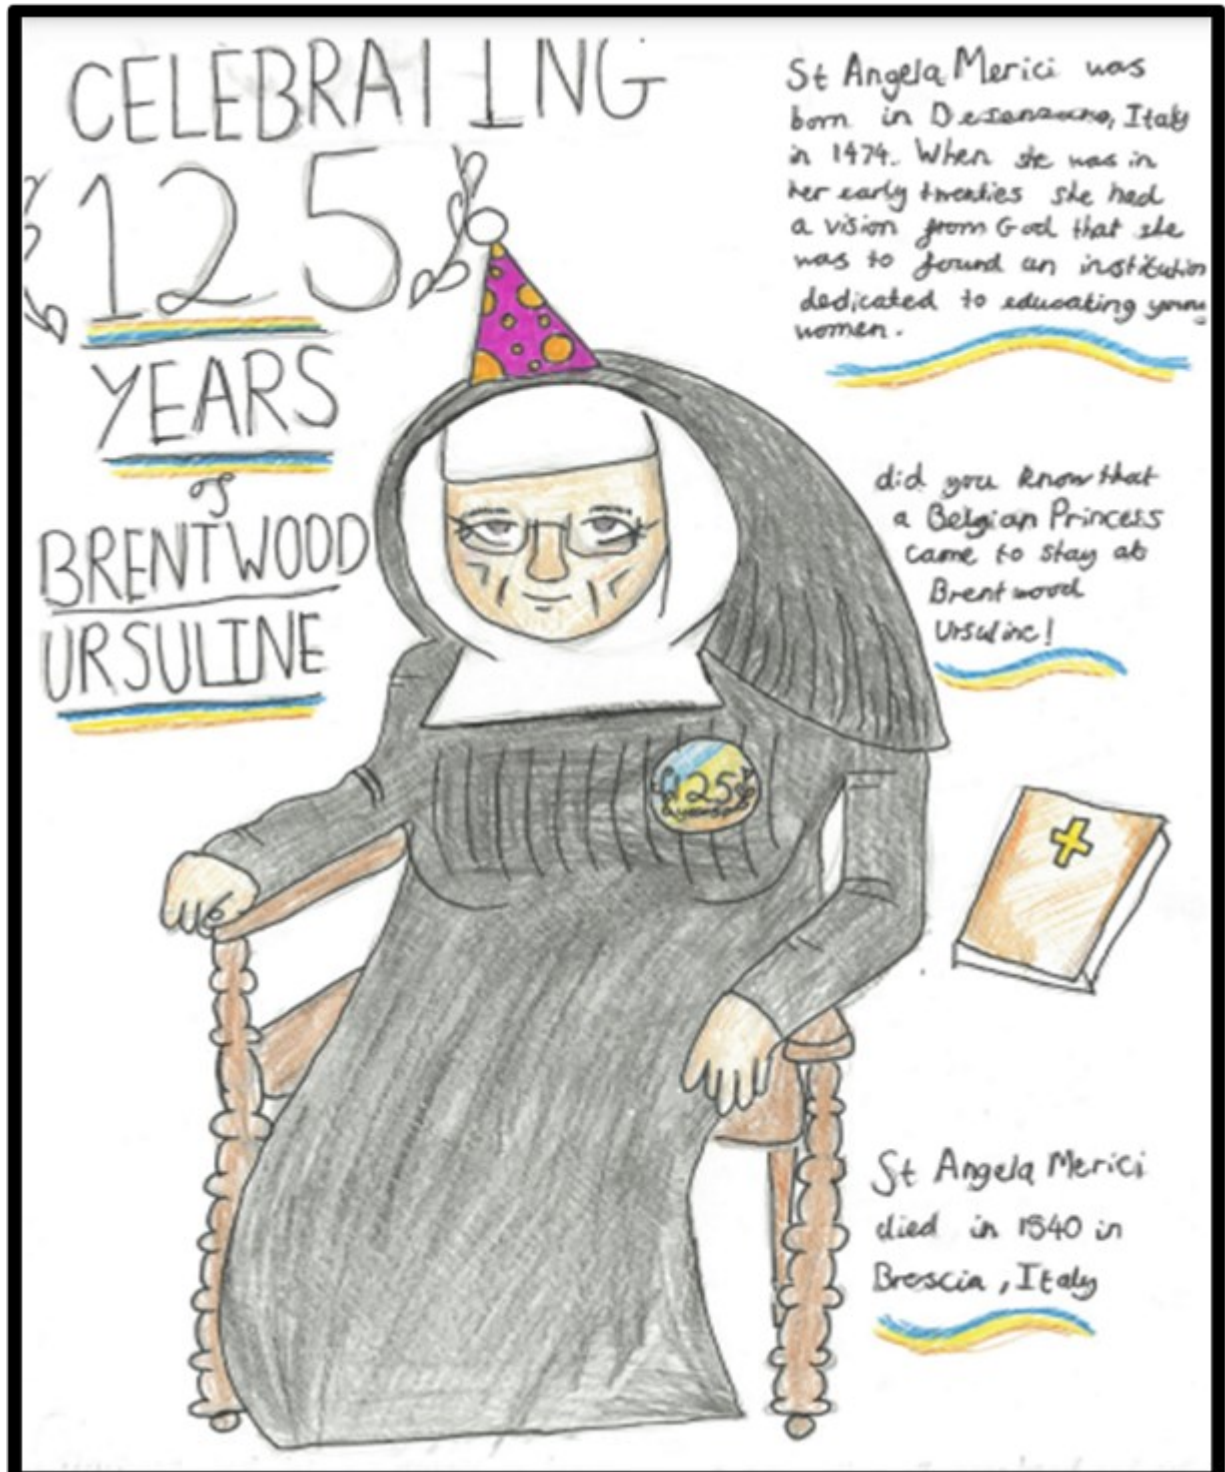 CELEBRATING
125
YEARS
of
BRENTWOOD
URSULINE
St Angela Merici was
born in Desenzano, Italy
in 1474. When she was in
her early twenties she had
a vision from God that she
was to found an institution
dedicated to educating young
women.
did you know that
a Belgian Princess
came to stay at
Brentwood
Ursuline!
125
St Angela Merici
died in 1540 in
Brescia, Italy